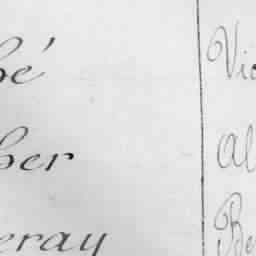 bé Vic
ber Al
eray Be